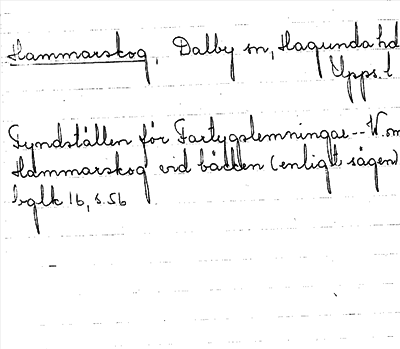 Hammarskog, Dalby sn, Hagunda hd
Upps. l
Fyndställen för Fartygslemningar -- V. om
Hammarskog vid bäcken (enligt sägen)
bglk 16, s. 56